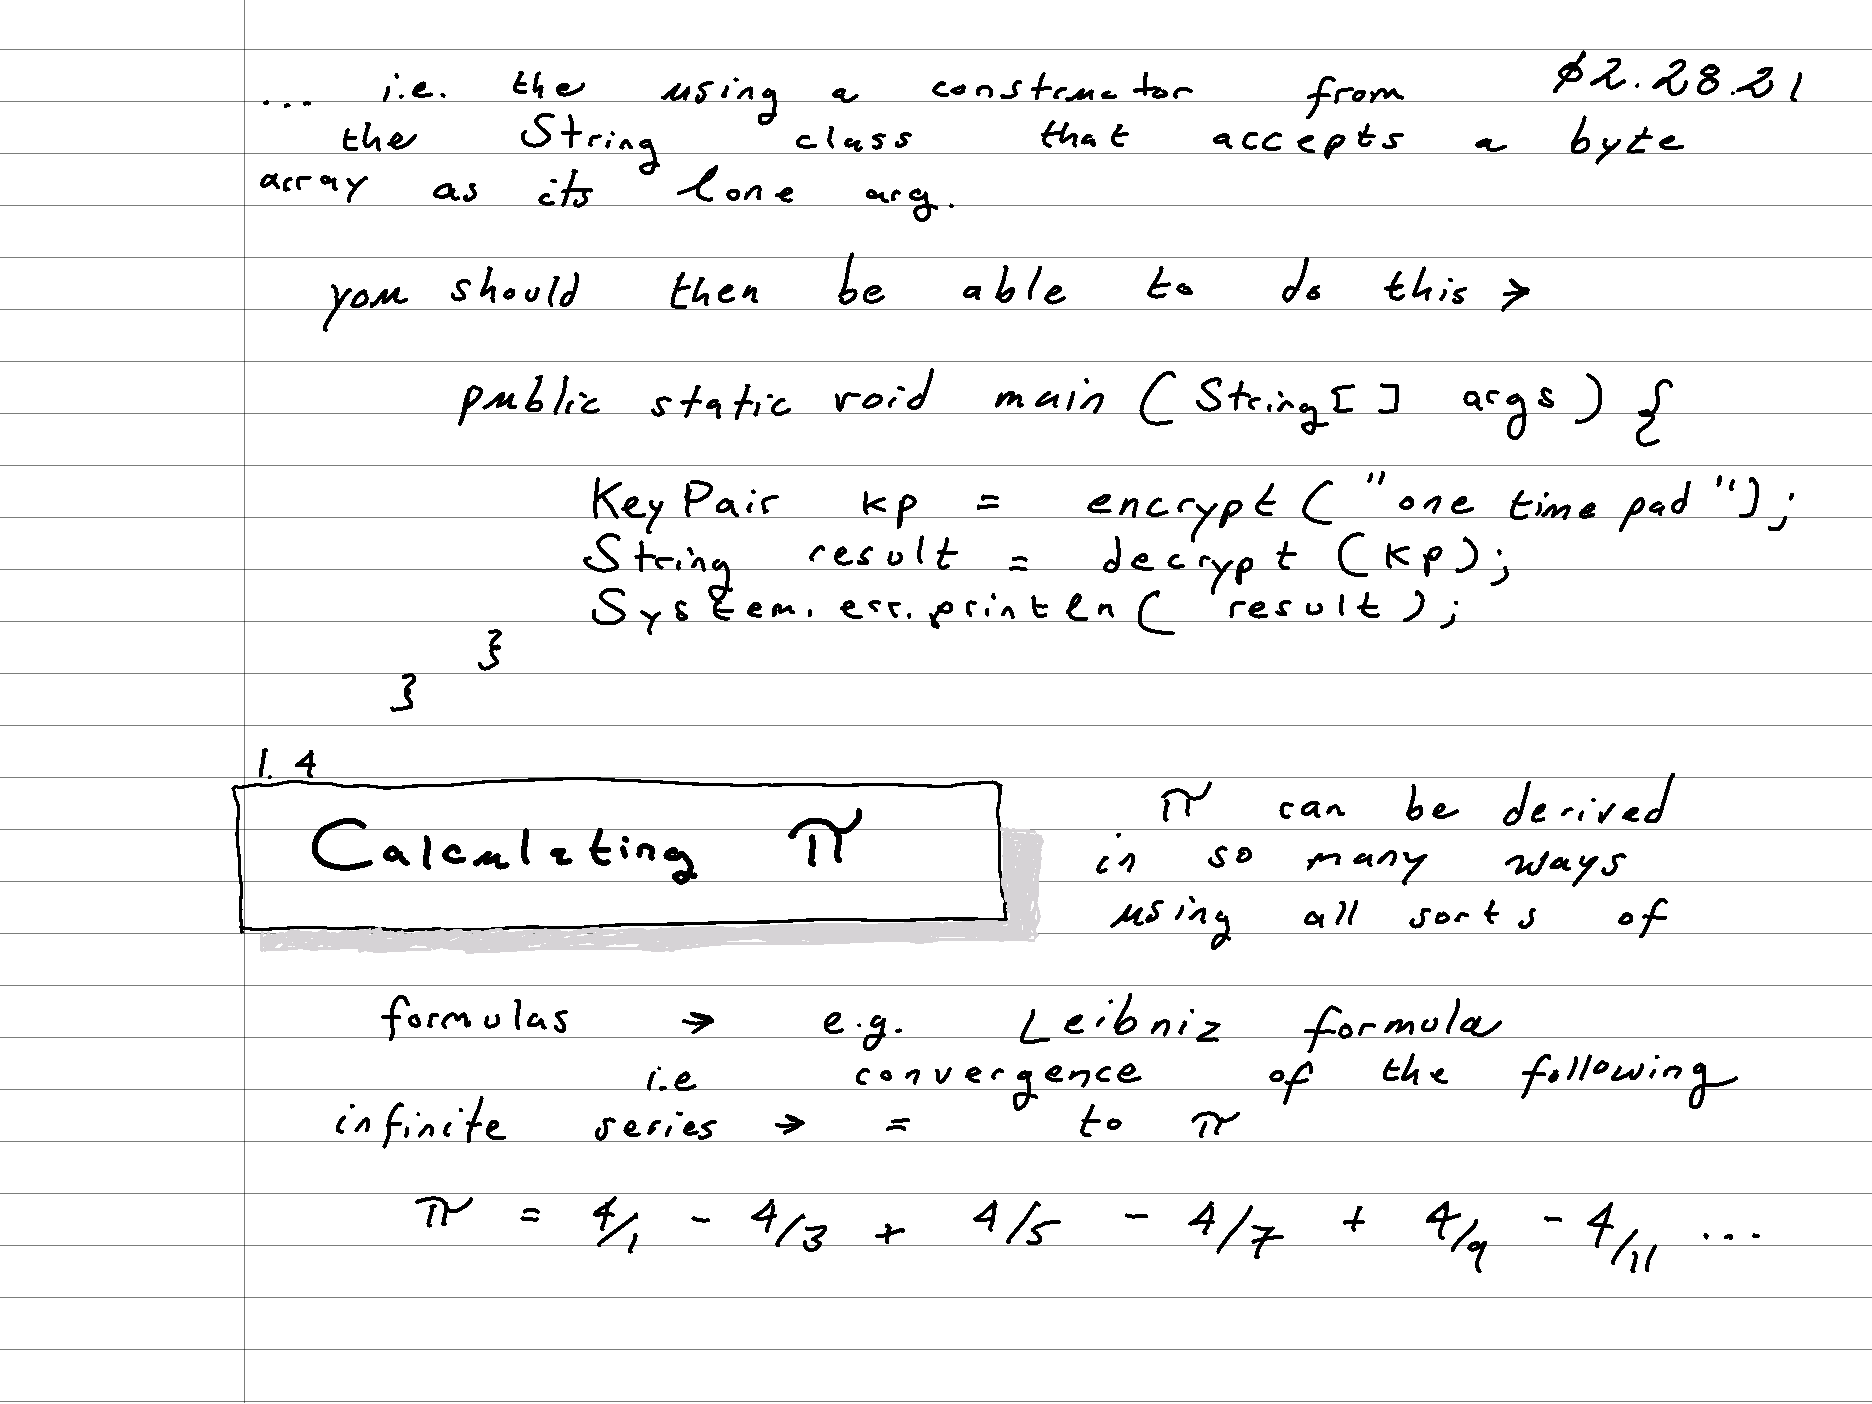 ... i.e. the using a constructor from ø2.28.21
the String class that accepts a byte
array as its lone arg.
you should then be able to do this →
public static void main ( String[ ] args ) {
KeyPair kp = encrypt ( "one time pad");
String result = decrypt (kp);
System.err.println( result );
}
}
1.4
Calculating π
π can be derived
in so many ways
using all sorts of
formulas → e.g. Leibniz formula
i.e convergence of the following
infinite series → = to π
π = 4/1 - 4/3 + 4/5 - 4/7 + 4/9 - 4/11 ...